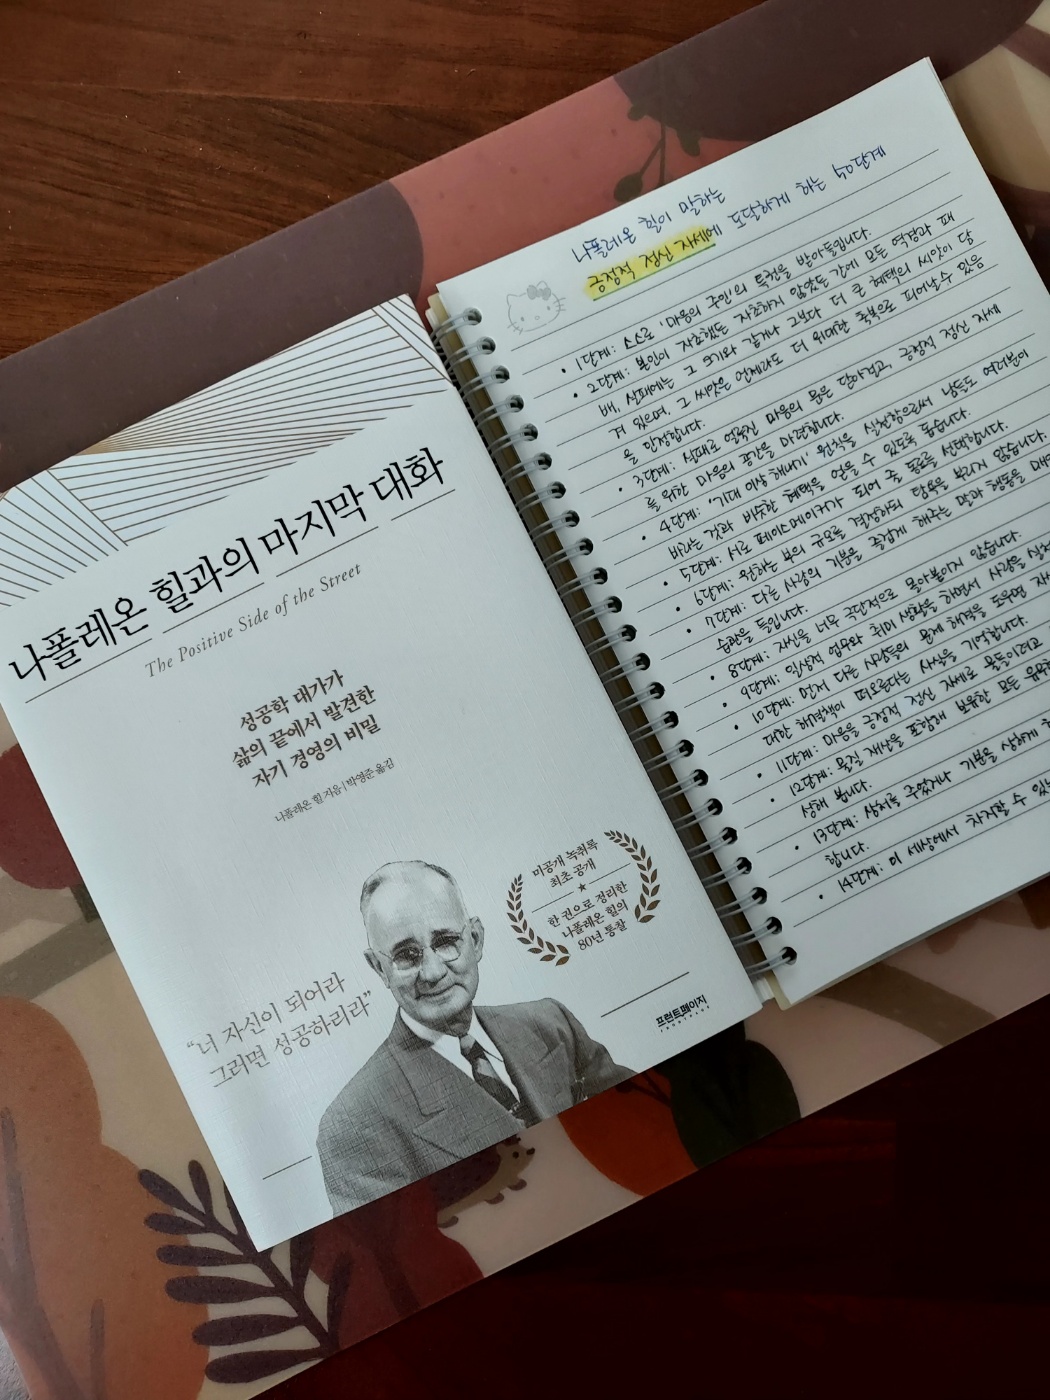 나폴레온 힐과의 마지막 대화
The Positive Side of the Street
성공학 대가가
삶의 끝에서 발견한
자기 경영의 비밀
나폴레온 힐 지음 | 박영준 옮김
미공개 녹취록
최초 공개
한 권으로 정리한
나폴레온 힐의
80년 통찰
“너 자신이 되어라
그러면 성공하리라”
프런트페이지
나폴레온 힐이 말하는
긍정적 정신 자세에 도달하게 하는 40단계
• 1단계: 스스로 '마음의 주인'의 특권을 받아들입니다.
• 2단계: 본인이 자초했든 자초하지 않았든 간에 모든 역경과 패
배, 실패에는 그 크기와 같거나 그보다 더 큰 혜택의 씨앗이 담
겨 있으며, 그 씨앗은 언제라도 더 위대한 축복으로 피어날 수 있음
을 인정합니다.
• 3단계: 실패로 얼룩진 마음의 문을 닫아걸고, 긍정적 정신 자세
를 위한 마음의 공간을 마련합니다.
• 4단계: '기대 이상 해내기' 원칙을 실천함으로써 남들도 여러분이
바라는 것과 비슷한 혜택을 얻을 수 있도록 돕습니다.
• 5단계: 서로 페이스메이커가 되어 줄 동료를 선택합니다.
• 6단계: 원하는 부의 규모를 결정하되 탐욕을 부리지 않습니다.
• 7단계: 다른 사람의 기분을 즐겁게 해주는 말과 행동을 매
습관을 들입니다.
• 8단계: 자신을 너무 극단적으로 몰아붙이지 않습니다.
• 9단계: 일상적 업무와 취미 생활을 하면서 사람을
• 10단계: 먼저 다른 사람들의 문제 해결을 도우면
대한 해결책이 떠오른다는 사실을 기억합니다.
• 11단계: 마음을 긍정적 정신 자세로 물들이려고
• 12단계: 물질 재산을 포함해 보유한 모든 유무
성해 봅니다.
• 13단계: 상처를 주었거나 기분을 상하게
합니다.
• 14단계: 이 세상에서 차지할 수 있